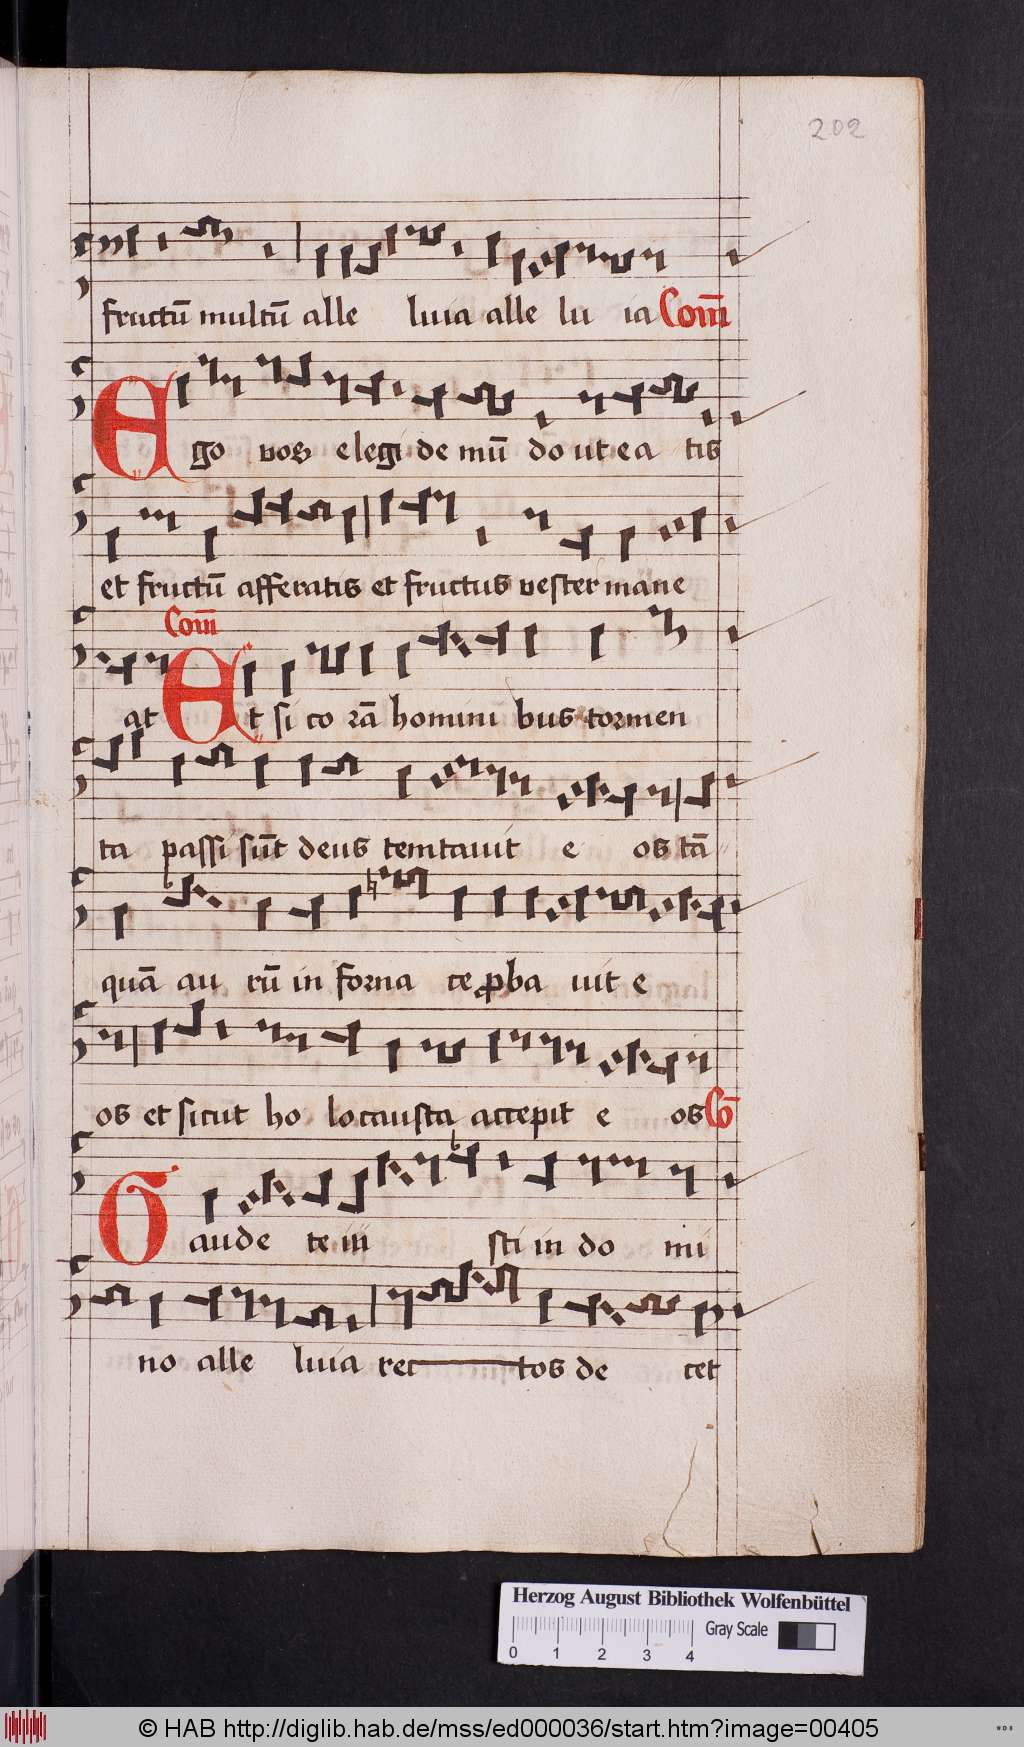 202
fructū multū alle luia alle lu ia Com̄
Ego vos elegi de mū do ut ea tis
et fructū afferatis et fructus vester mane
Com̄
at Et si co rā homini bus tormen
ta passi sūt deus temtauit e os tā
quā au rū in forna ce ꝓba uit e
os et sicut ho locausta accepit e os Cō
Gaude te iu sti in do mi
no alle luia rec tos de cet
Herzog August Bibliothek Wolfenbüttel
0 1 2 3 4 Gray Scale
© HAB http://diglib.hab.de/mss/ed000036/start.htm?image=00405